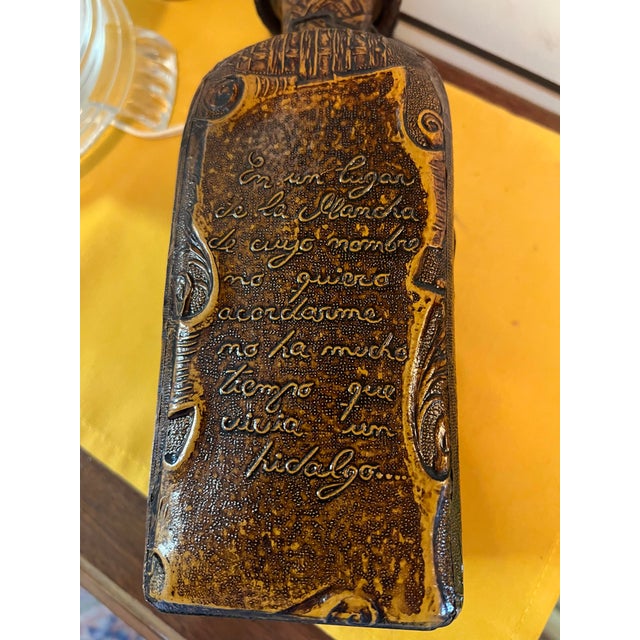 En un lugar
de la Mancha
de cuyo nombre
no quiero
acordarme
no ha mucho
tiempo que
vivia un
hidalgo....